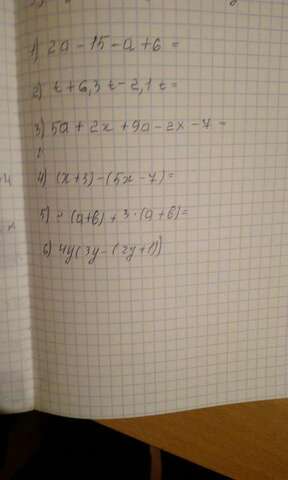 1) 2a - 15 - a + 6 =
2) t + 6,3 t - 2,1 t =
3) 5a + 2x + 9a - 2x - 7 =
4) (x+3) - (5x-7) =
5) (a+6) + 3·(a+6) =
6) 4y(3y-(2y+1))